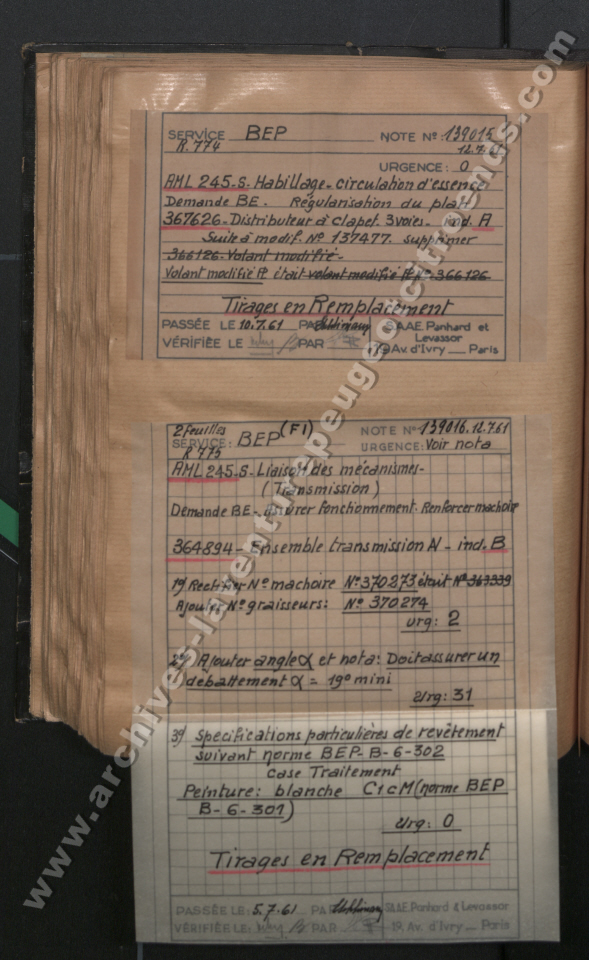 SERVICE BEP NOTE Nº: 139015
R.774 12.7.61
URGENCE: 0
AML 245.S. Habillage - circulation d'essence
Demande BE. Régularisation du plan
367626 - Distributeur à clapet. 3 voies - ind. A
Suite à modif. Nº 137477. supprimer
366126. Volant modifié -
Volant modifié était volant modifié Nº 366126
Tirages en Remplacement
PASSÉE LE 10.7.61 PAR S.A.A.E. Panhard et
Levassor
VÉRIFIÉE LE PAR 19 Av. d'Ivry __ Paris
2 feuilles (F1) NOTE Nº 139016. 12.7.61
SERVICE: BEP URGENCE: Voir nota
R 775
AML 245.S. Liaison des mécanismes -
(Transmission)
Demande BE - Assurer fonctionnement. Renforcer machoire
364894 - Ensemble transmission N - ind. B
1º) Rectifier Nº machoire Nº 370273 était Nº 363339
Ajouter Nº graisseurs: Nº 370274
Urg: 2
2º) Ajouter angle α et nota: Doit assurer un
débattement α = 19º mini
Urg: 31
3º) Specifications particulières de revêtement
suivant norme BEP-B-6-302
case Traitement
Peinture: blanche C1cM (norme BEP
B-6-301)
Urg: 0
Tirages en Remplacement
PASSÉE LE: 5.7.61 PAR S.A.A.E. Panhard & Levassor
VÉRIFIÉE LE: PAR 19, Av. d'Ivry __ Paris
www.archives-laventurepeugeotcitroends.com